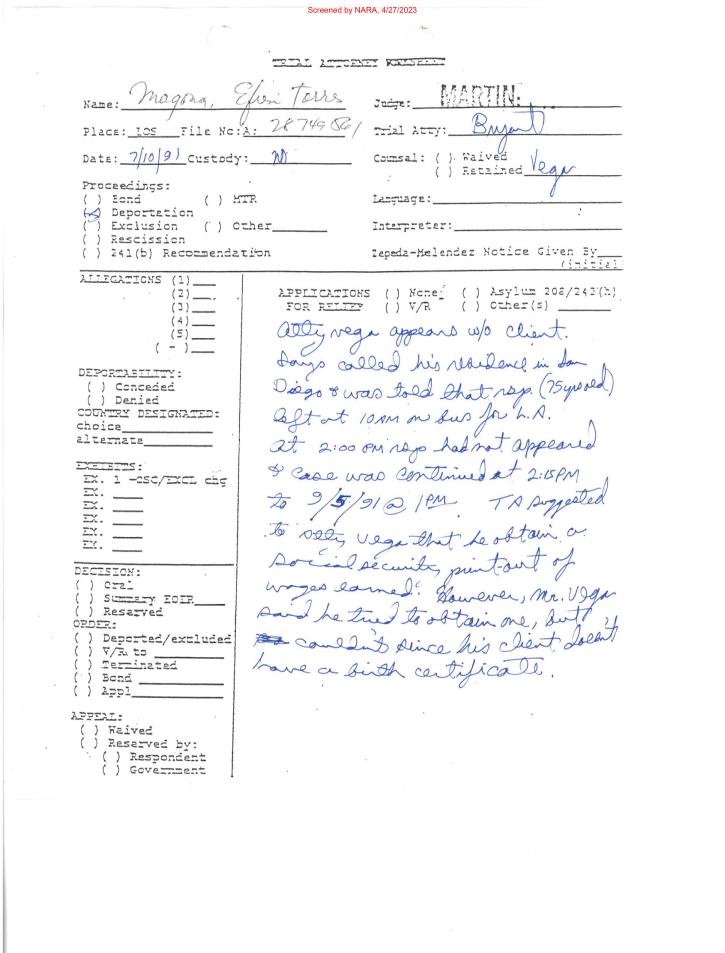 Screened by NARA, 4/27/2023
TRIAL ATTORNEY WORKSHEET
Name: Magona, Efren Torres
Judge: MARTIN
Place: LOS File No: A: 28 749 861
Trial Atty: Bryant
Date: 7/10/91 Custody: ND
Counsal: ( ) Waived
( ) Retained Vega
Proceedings:
( ) Bond ( ) MTR
(✓) Deportation
( ) Exclusion ( ) Other
( ) Rescission
( ) 241(b) Recommendation
Language:
Interpreter:
Zepeda-Melendez Notice Given By
(initial
ALLEGATIONS (1)
(2)
(3)
(4)
(5)
( - )
DEPORTABILITY:
( ) Conceded
( ) Denied
COUNTRY DESIGNATED:
choice
alternate
EXHIBITS:
EX. 1 -OSC/EXCL chg
EX.
EX.
EX.
EX.
EX.
DECISION:
( ) Oral
( ) Summary EOIR
( ) Reserved
ORDER:
( ) Deported/excluded
( ) V/R to
( ) Terminated
( ) Bond
( ) Appl
APPEAL:
( ) Waived
( ) Reserved by:
( ) Respondent
( ) Government
APPLICATIONS ( ) None ( ) Asylum 208/243(h)
FOR RELIEF ( ) V/R ( ) Other(s)
Atty Vega appears w/o client.
Says called his residence in San
Diego & was told that resp. (75 yr old)
left at 10 AM on bus for L.A.
At 2:00 PM resp had not appeared
& case was continued at 2:15 PM
to 9/5/91 @ 1 PM. TA suggested
to atty Vega that he obtain a
social security print-out of
wages earned. However, Mr. Vega
said he tried to obtain one, but
couldn't since his client doesn't
have a birth certificate.